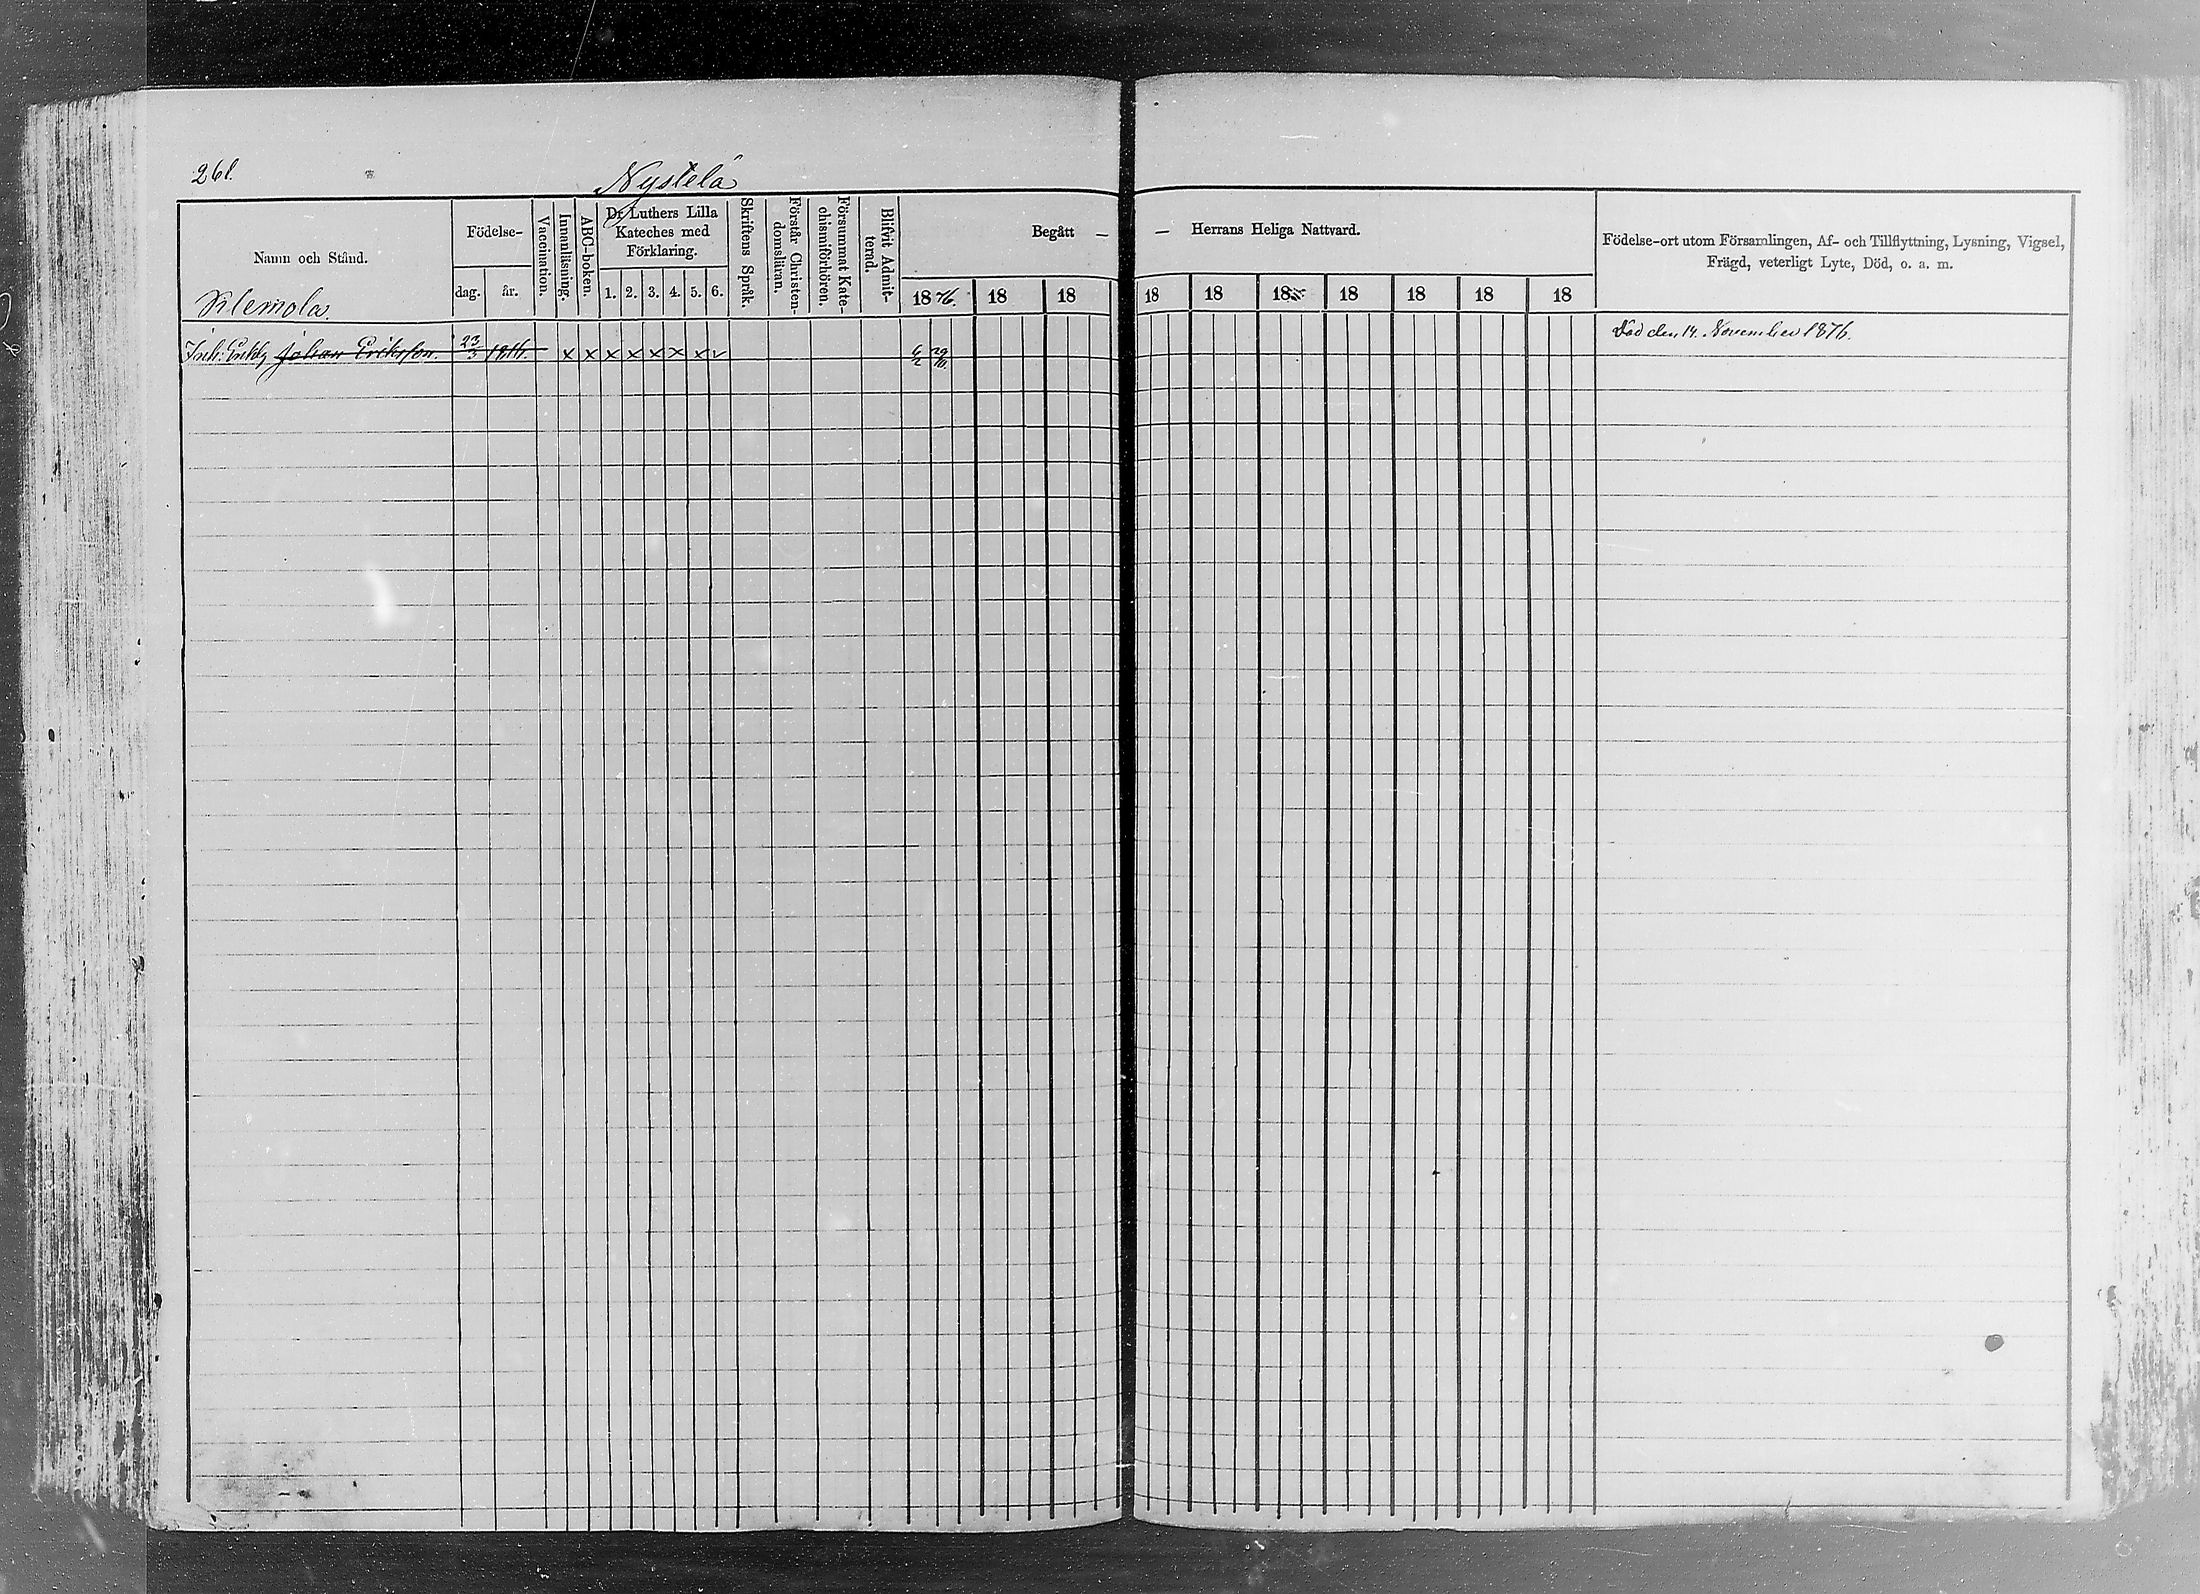 261.
Nystelä
Namn och Stånd.
Födelse-
dag. år.
Vaccination.
Innanläsning.
ABC-boken.
Dr Luthers Lilla
Kateches med
Förklaring.
1. 2. 3. 4. 5. 6.
Skriftens Språk.
Förstår Christen-
domsläran.
Försummat Kate-
chismiförhören.
Blifvit Admit-
terad.
Begått — — Herrans Heliga Nattvard.
1876. 18 18 18 18 18 18 18 18 18
Födelse-ort utom Församlingen, Af- och Tillflyttning, Lysning, Vigsel,
Frägd, veterligt Lyte, Död, o. a. m.
Klemola.
Inh: Enkl: Johan Eriksson. 23/3 1816. x x x x x x x v 29/10 Död den 14. November 1876.